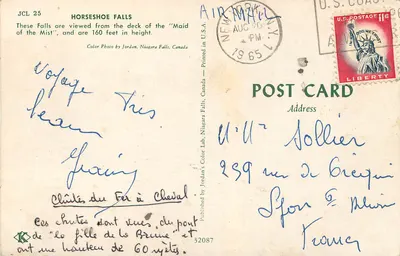 JCL 25
HORSESHOE FALLS
These Falls are viewed from the deck of the "Maid
of the Mist", and are 160 feet in height.
Color Photo by Jordan, Niagara Falls, Canada
Voyage Très
beau
Chûtes du Fer à Cheval
Ces chutes sont vues du pont
de "la fille de la Brume" et
ont une hauteur de 60 mètres.
K
Published by Jordan's Color Lab, Niagara Falls, Canada
Printed in U.S.A.
52087
AIR MAIL
NEW YORK, N.Y. 1
AUG
PM
1965
U.S. COAST
U.S. POSTAGE 11¢
LIBERTY
POST CARD
Address
Sollier
239 rue de
Lyon
France